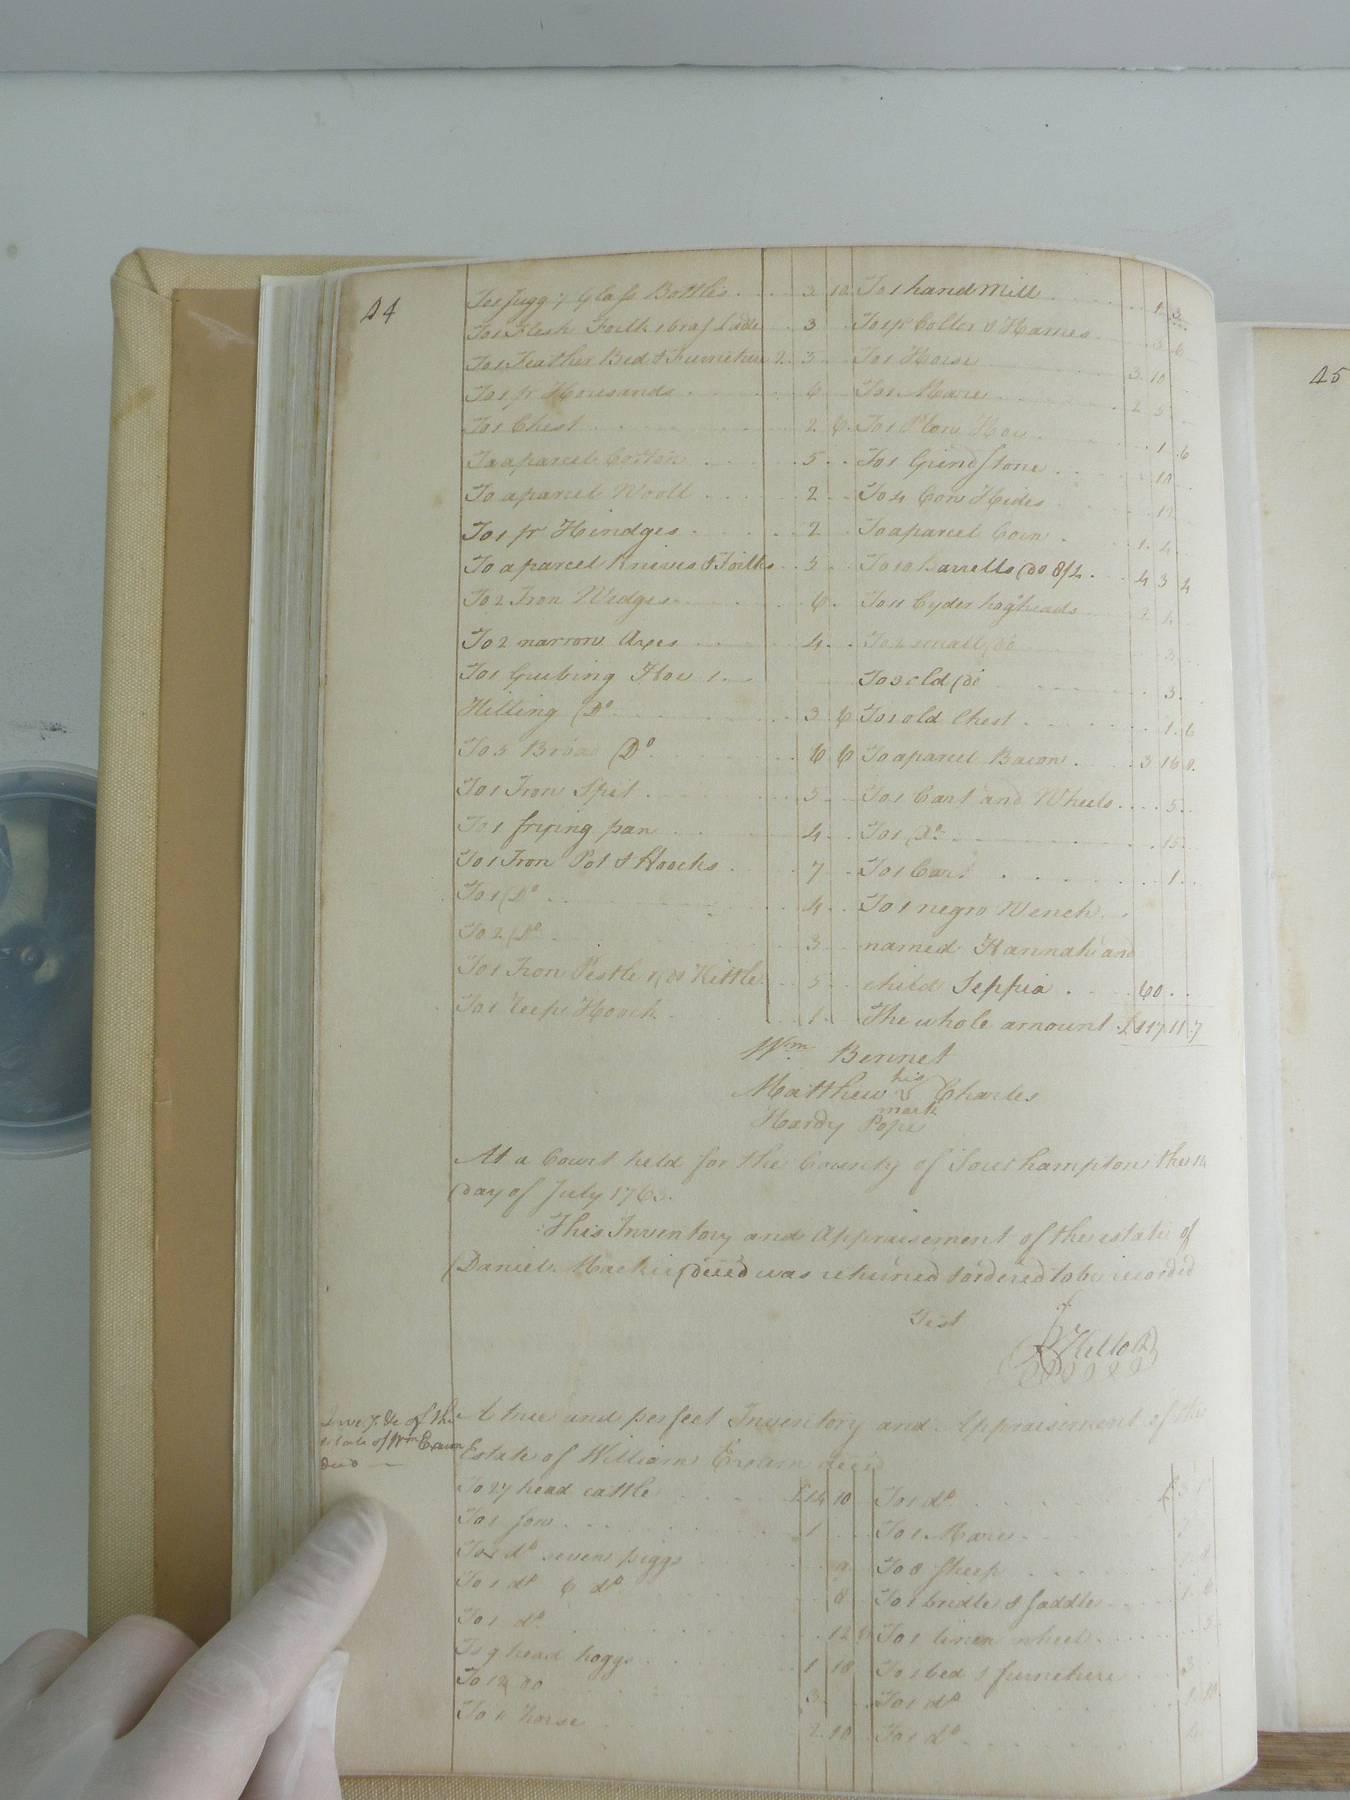 44
To 1 Jugg 7 Glass Bottles 3 10
To 1 Flesh Fork 1 bras Ladle 3
To 1 Feather Bed & Furniture 2 3
To 1 pr Housands 6
To 1 Chest 2 6
To a parcel Cotton 5
To a parcel Wooll 2
To 1 pr Hindges 2
To a parcel Knives & Forks 5
To 2 Iron Wedges 6
To 2 narrow Axes 4
To 1 Grubing Hoe 1
Hilling Do 3 6
To 3 Broad Do 6 6
To 1 Iron Spit 5
To 1 frying pan 4
To 1 Iron Pot & Hoocks 7
To 1 Do 4
To 2 Do 3
To 1 Iron Pestle 1 do Kettle 5
To 1 Hoock 1
To 1 hand Mill 1 3
To 1 pr Coller & Hames 3 6
To 1 Horse 3 10
To 1 Mare 2 5
To 1 Plow Hou 1 6
To 1 Grindstone 10
To 4 Cow Hides 12
To a parcel Corn 1 4
To 10 barrells do 8/4 4 3 4
To 11 Cyder hogheads 2 4
To 2 small do 3
To 3 old do 3
To 1 old Chest 1 6
To a parcel Bacon 3 16 0
To 1 Cart and Wheels 5
To 1 Do 15
To 1 Cart 1
To 1 negro Wench
named Hannah and
child Seppia 60
The whole amount £117 11 7
Wm Bennet
his
Matthew Charles
mark
Hardy Pope
At a Court held for the County of Southampton the 14
day of July 176
This Inventory and Appraisement of the estate of
Daniel Mackie decd was returned & ordered to be recorded
Test
R Kello
Invy &c of the
Estate of Wm Exum
decd
A true and perfect Inventory and Appraisement of the
Estate of William Exum decd
To 27 head cattle £14 10
To 1 sow 1
To 1 do seven piggs 9
To 1 do 6 do 8
To 1 do 12 6
To 9 head hoggs 1 18
To 12 do 3
To 1 horse 2 10
To 1 do
To 1 Mare
To 8 sheep
To 1 bridle & saddle
To 1 linen wheel
To 1 bed & furniture 3
To 1 do
To 1 do
45